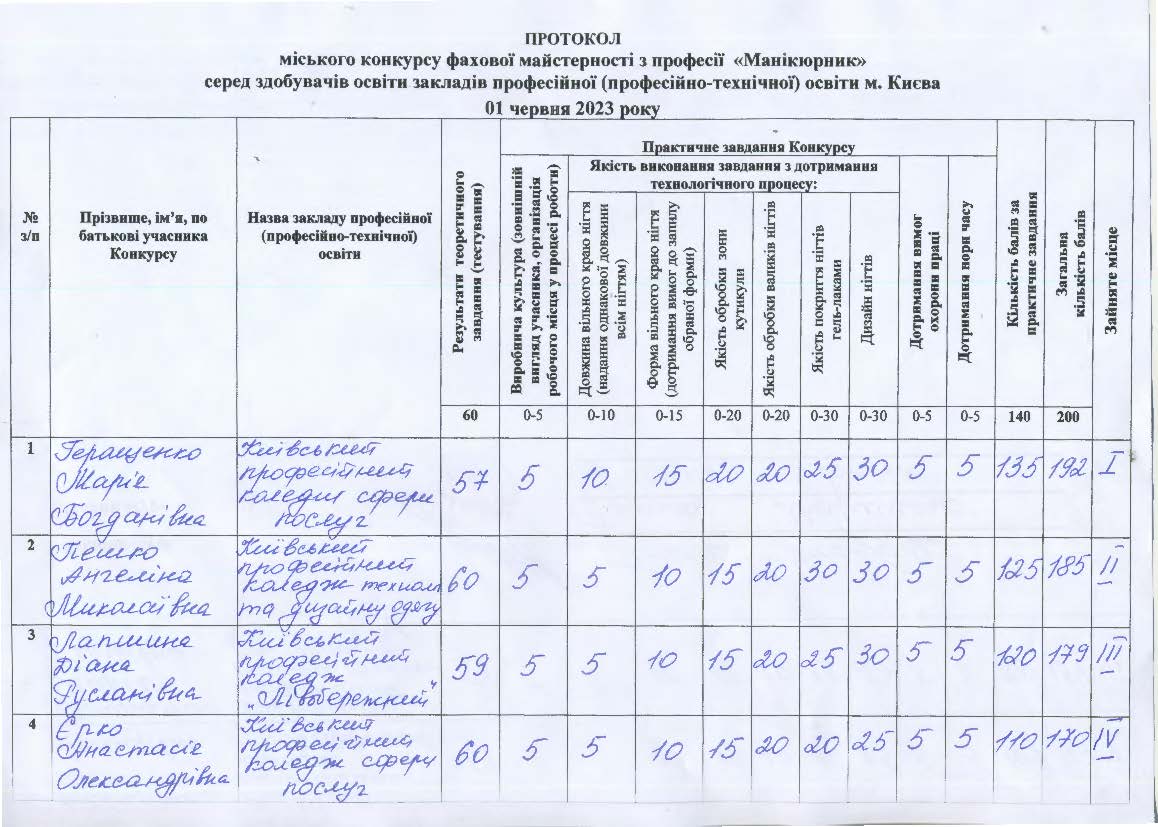 ПРОТОКОЛ
міського конкурсу фахової майстерності з професії «Манікюрник»
серед здобувачів освіти закладів професійної (професійно-технічної) освіти м. Києва
01 червня 2023 року
№
з/п
Прізвище, ім’я, по
батькові учасника
Конкурсу
Назва закладу професійної
(професійно-технічної)
освіти
Результати теоретичного
завдання (тестування)
Практичне завдання Конкурсу
Виробнича культура (зовнішній
вигляд учасника, організація
робочого місця у процесі роботи)
Якість виконання завдання з дотримання
технологічного процесу:
Довжина вільного краю нігтя
(надання однакової довжини
всім нігтям)
Форма вільного краю нігтя
(дотримання вимог до запилу
обраної форми)
Якість обробки зони
кутикули
Якість обробки валиків нігтів
Якість покриття нігтів
гель-лаками
Дизайн нігтів
Дотримання вимог
охорони праці
Дотримання норм часу
Кількість балів за
практичне завдання
Загальна
кількість балів
Зайняте місце
60 0-5 0-10 0-15 0-20 0-20 0-30 0-30 0-5 0-5 140 200
1
Геращенко
Марія
Богданівна
Київський
професійний
коледж сфери
послуг
57 5 10 15 20 20 25 30 5 5 135 192 I
2
Пешко
Ангеліна
Миколаївна
Київський
професійний
коледж технол
та дизайну одягу
60 5 5 10 15 20 30 30 5 5 125 185 II
3
Лапшина
Діана
Русланівна
Київський
професійний
коледж
„Лівобережний"
59 5 5 10 15 20 25 30 5 5 120 179 III
4
Єрко
Анастасія
Олександрівна
Київський
професійний
коледж сфери
послуг
60 5 5 10 15 20 20 25 5 5 110 170 IV